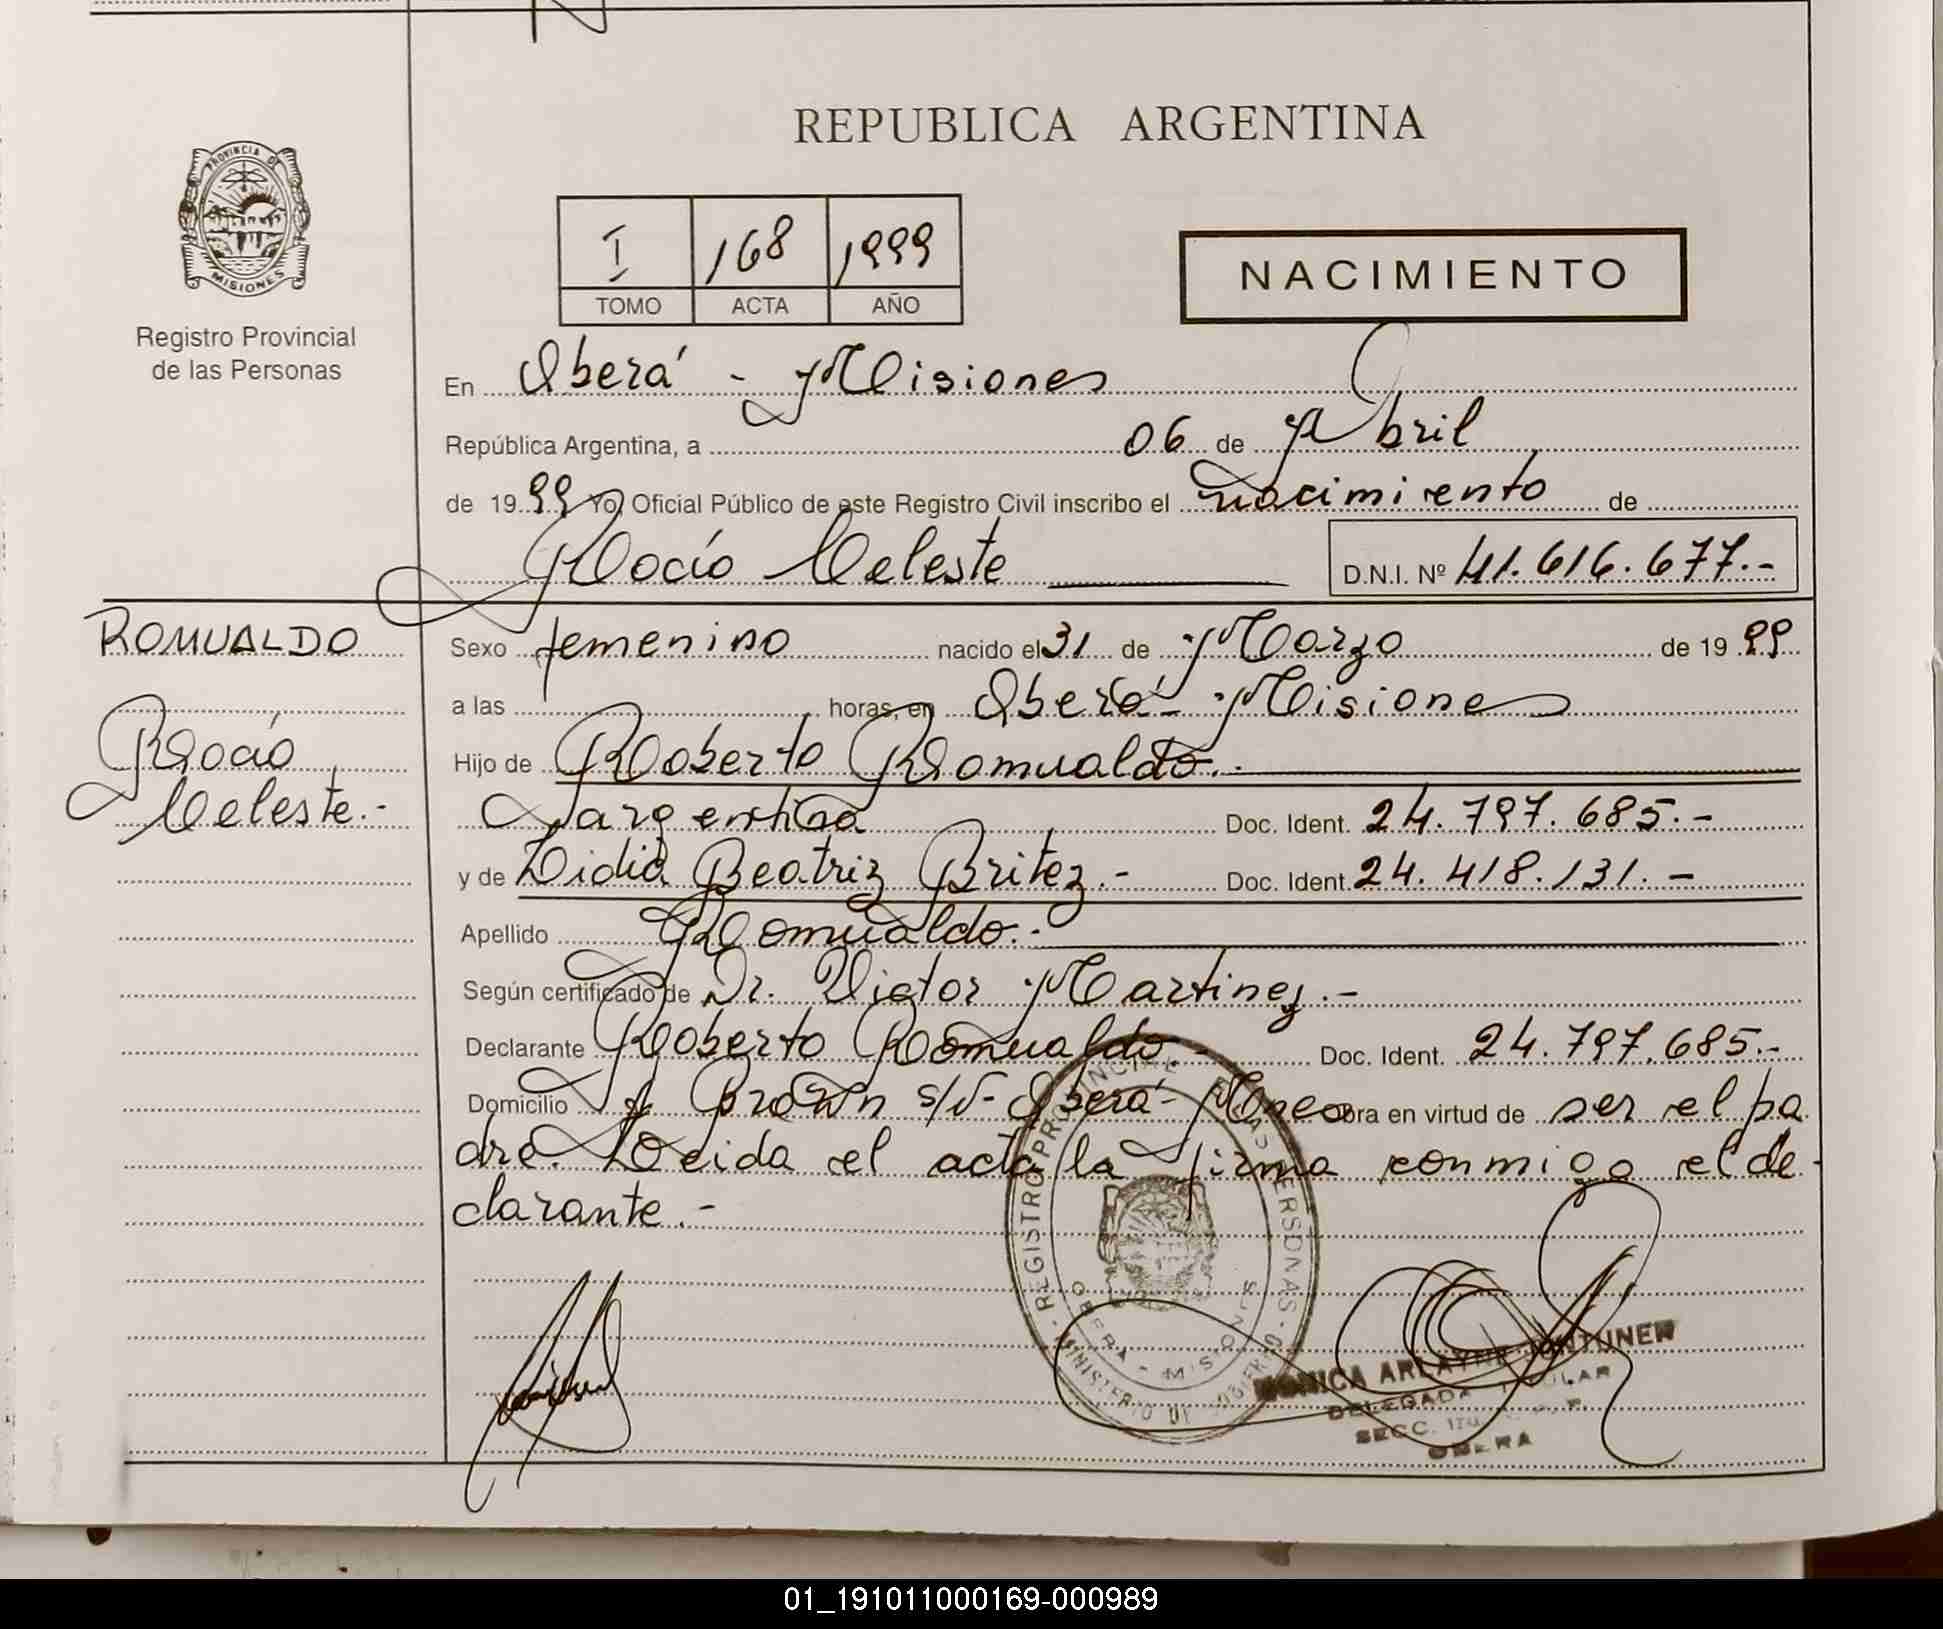 REPUBLICA ARGENTINA
PROVINCIA DE
MISIONES
Registro Provincial
de las Personas
I 168 1999
TOMO ACTA AÑO
NACIMIENTO
En Oberá - Misiones
República Argentina, a 06 de Abril
de 1999 Yo, Oficial Público de este Registro Civil inscribo el nacimiento de
Rocío Celeste D.N.I. Nº 41.616.677.-
ROMUALDO
Rocío
Celeste.-
Sexo femenino nacido el 31 de Marzo de 1999
a las horas, en Oberá - Misiones
Hijo de Roberto Romualdo.-
argentina Doc. Ident. 24.797.685.-
y de Lidia Beatriz Britez.- Doc. Ident. 24.418.131.-
Apellido Romualdo.-
Según certificado de Dr. Victor Martinez.-
Declarante Roberto Romualdo.- Doc. Ident. 24.797.685.-
Domicilio Brown s/n- Oberá- Mnes Obra en virtud de ser el pa
dre. Leida el acta la firma conmigo el de-
clarante.-
REGISTRO PROVINCIAL PERSONAS
OBERA - MISIONES
MINISTERIO DE GOBIERNO
MONICA ARLAYNE
DELEGADA TITULAR
SECC.
OBERA
01_191011000169-000989